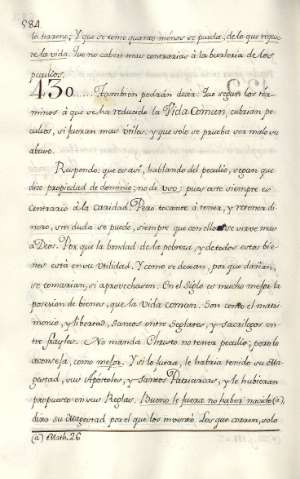 584
lo terreno; Y que se tome quanto menos se pueda, de lo que requie
re la vida. Que no caben mas contrarias à la burleria de los
peculios.
130. Tambien podràn decir: Que segun los ter-
minos à que ha reducido la Vida Comun, cabrian pe-
culios, si fueran mas utiles; y que solo se prueba ser malo su
abuso.
Respondo: que es assi, hablando del peculio, segun que
dice propiedad de dominio; no de uso; pues este siempre es
contrario à la caridad. Pero tocante à tener, y retener di-
nero, sin duda se puede, siempre que con ello se sirve mas
a Dios. Por que la bondad de la pobreza, y de todos estos bie-
nes està en su utilidad. Y como se dexan, por que dañan,
se tomarian, si aprovecharan. En el siglo es mucho mejor la
posesion de bienes, que la vida comun. Son como el matri-
monio, y libertad, santos entre Seglares, y sacrilegos en-
tre frayles. No manda Christo no tener peculio; pero lo
aconseja, como mejor. Y si lo fuera, le habria tenido su Ma-
gestad, sus Apóstoles, y Santos Patriarcas, y le hubieran
propuesto en sus Reglas. Bueno le fuera no haber nacido (a),
dixo su Magestad por el que los mostró. Los que curan, solo
(a) Math. 26